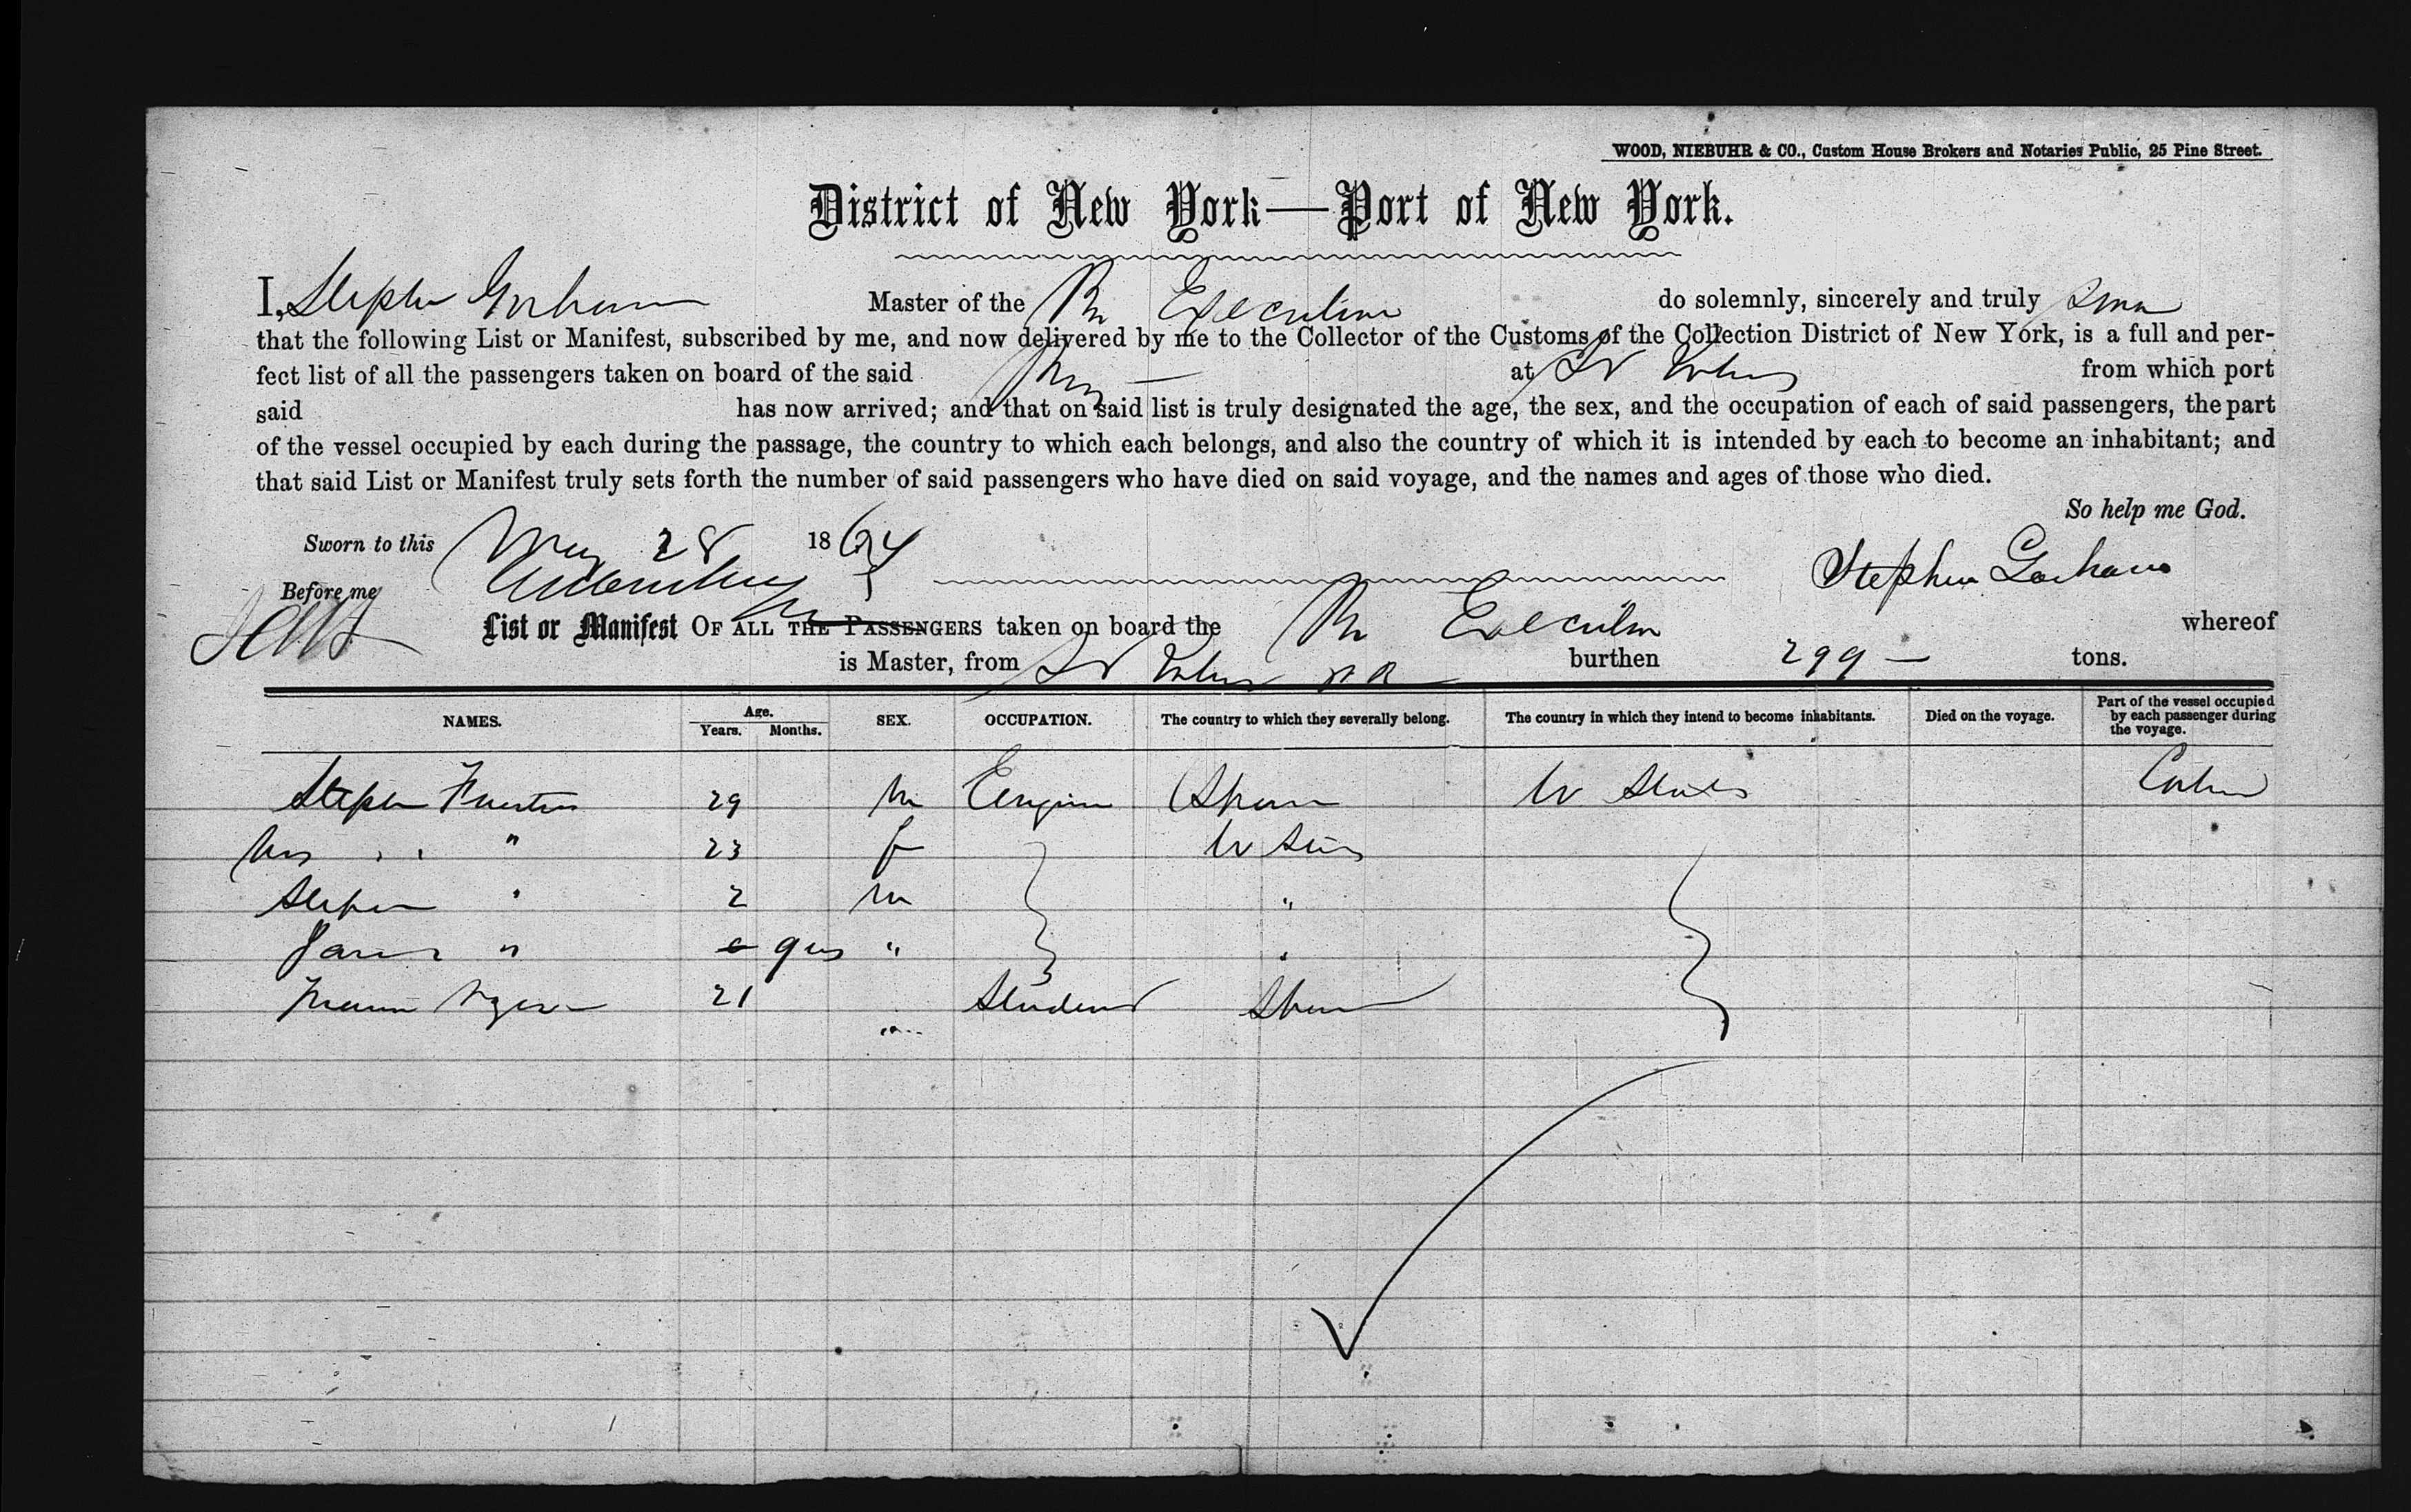 WOOD, NIEBUHR & CO., Custom House Brokers and Notaries Public, 25 Pine Street.
District of New York—Port of New York.
I, Stephen Gorham Master of the Br Executive do solemnly, sincerely and truly
that the following List or Manifest, subscribed by me, and now delivered by me to the Collector of the Customs of the Collection District of New York, is a full and per-
fect list of all the passengers taken on board of the said at St Johns from which port
said has now arrived; and that on said list is truly designated the age, the sex, and the occupation of each of said passengers, the part
of the vessel occupied by each during the passage, the country to which each belongs, and also the country of which it is intended by each to become an inhabitant; and
that said List or Manifest truly sets forth the number of said passengers who have died on said voyage, and the names and ages of those who died.
So help me God.
Sworn to this May 28 1864
Stephen Gorham
Before me
List or Manifest OF ALL THE PASSENGERS taken on board the Br Executive whereof
is Master, from St Johns P R burthen 299 — tons.
NAMES. Age. Years. Months. SEX. OCCUPATION. The country to which they severally belong. The country in which they intend to become inhabitants. Died on the voyage. Part of the vessel occupied by each passenger during the voyage.
Stephen Fuertes 29 m Engineer Spain U States Cabin
Mrs " " 23 f U States
Stephen " 2 m "
" 9 ms " "
21 Student Spain